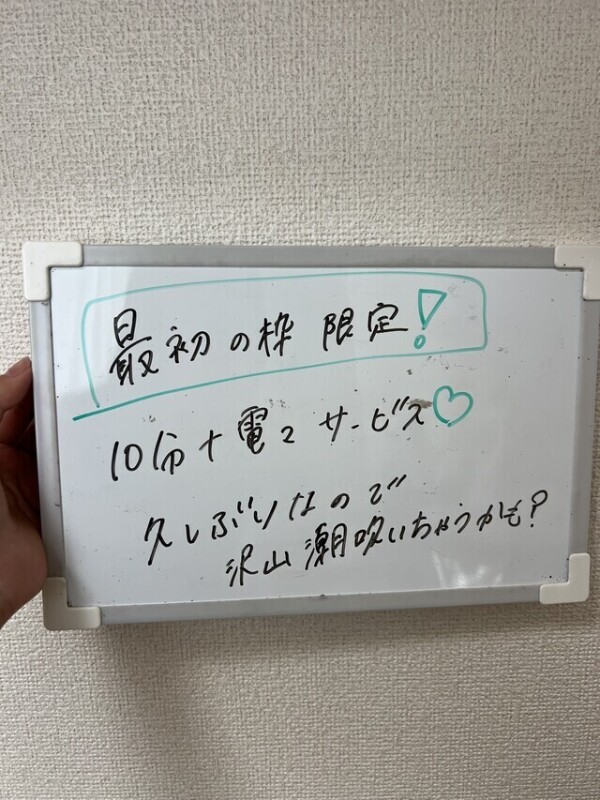 最初の枠 限定!
10分+電マ サービス♡
久しぶりなので
沢山潮吹いちゃうかも?